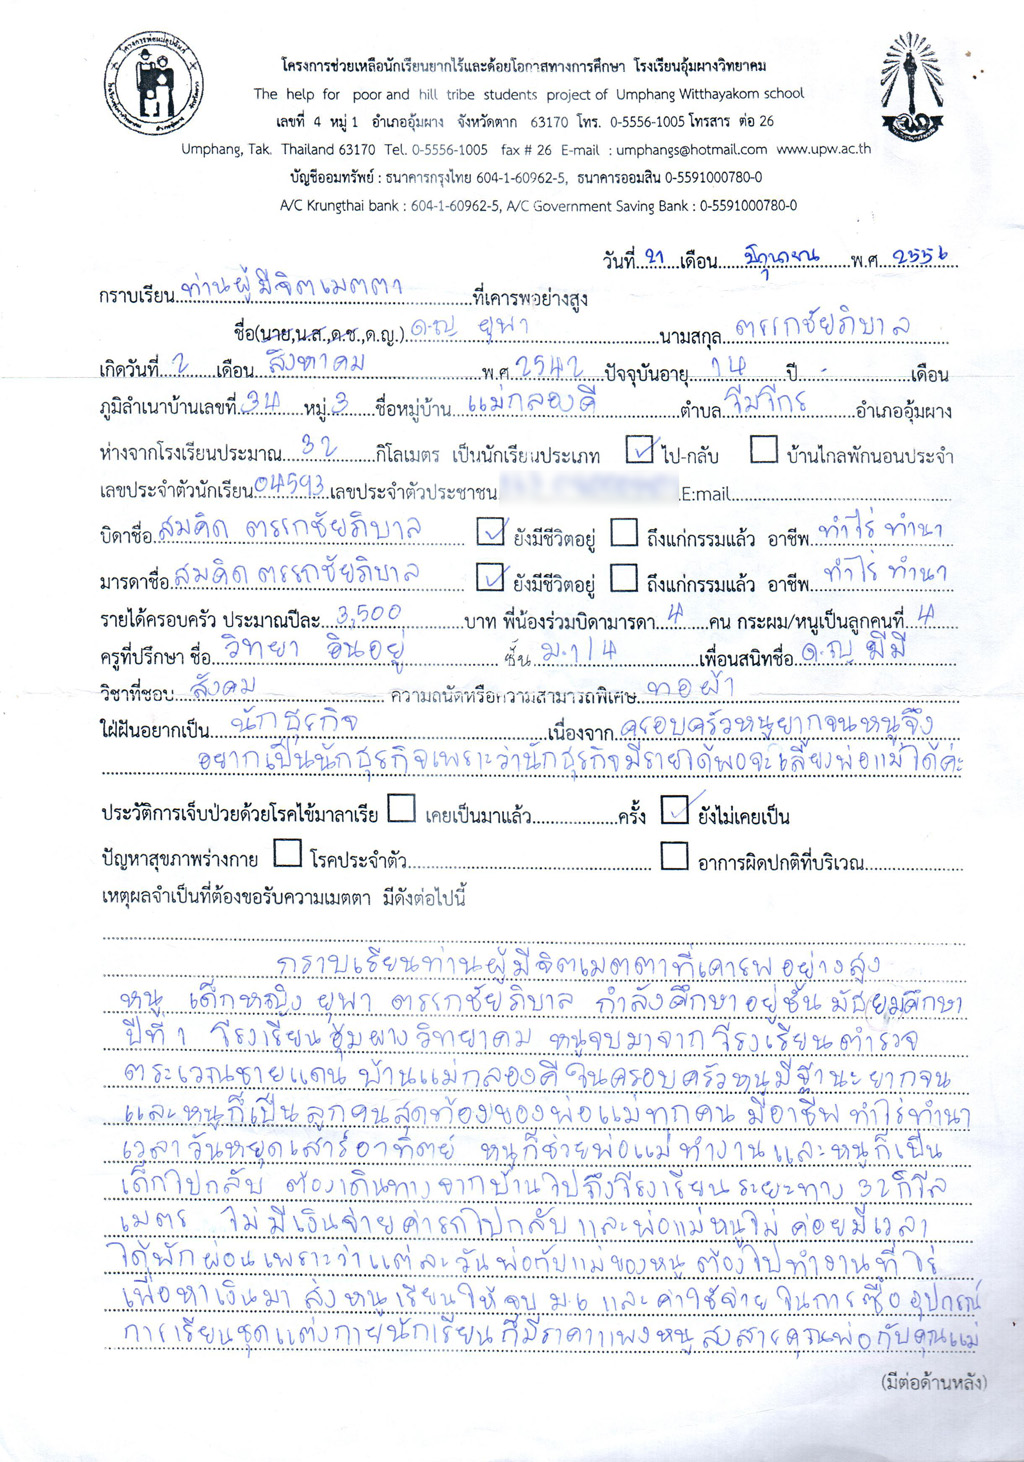 โครงการช่วยเหลือนักเรียนยากไร้และด้อยโอกาสทางการศึกษา โรงเรียนอุ้มผางวิทยาคม
The help for poor and hill tribe students project of Umphang Witthayakom school
เลขที่ 4 หมู่ 1 อำเภออุ้มผาง จังหวัดตาก 63170 โทร. 0-5556-1005 โทรสาร ต่อ 26
Umphang, Tak. Thailand 63170 Tel. 0-5556-1005 fax # 26 E-mail : umphangs@hotmail.com www.upw.ac.th
บัญชีออมทรัพย์ : ธนาคารกรุงไทย 604-1-60962-5, ธนาคารออมสิน 0-5591000780-0
A/C Krungthai bank : 604-1-60962-5, A/C Government Saving Bank : 0-5591000780-0
วันที่ 21 เดือน มิถุนายน พ.ศ. 2556
กราบเรียน ท่านผู้มีจิตเมตตา ที่เคารพอย่างสูง
ชื่อ(นาย,น.ส.,ด.ช.,ด.ญ.) ด.ญ ยุพา นามสกุล ตรรกชัยภิบาล
เกิดวันที่ 2 เดือน สิงหาคม พ.ศ. 2542 ปัจจุบันอายุ 14 ปี - เดือน
ภูมิลำเนาบ้านเลขที่ 34 หมู่ 3 ชื่อหมู่บ้าน แม่กลองคี ตำบล โมโกร อำเภออุ้มผาง
ห่างจากโรงเรียนประมาณ 32 กิโลเมตร เป็นนักเรียนประเภท ไป-กลับ บ้านไกลพักนอนประจำ
เลขประจำตัวนักเรียน 04593 เลขประจำตัวประชาชน E:mail
บิดาชื่อ สมคิด ตรรกชัยภิบาล ยังมีชีวิตอยู่ ถึงแก่กรรมแล้ว อาชีพ ทำไร่ ทำนา
มารดาชื่อ สมคิด ตรรกชัยภิบาล ยังมีชีวิตอยู่ ถึงแก่กรรมแล้ว อาชีพ ทำไร่ ทำนา
รายได้ครอบครัว ประมาณปีละ 3,500 บาท พี่น้องร่วมบิดามารดา 4 คน กระผม/หนูเป็นลูกคนที่ 4
ครูที่ปรึกษา ชื่อ วิทยา อินอยู่ ชั้น ม.1/4 เพื่อนสนิทชื่อ ด.ญ มีมี
วิชาที่ชอบ สังคม ความถนัดหรือความสามารถพิเศษ ทอผ้า
ใฝ่ฝันอยากเป็น นักธุรกิจ เนื่องจาก ครอบครัวหนูยากจนหนูจึง
อยากเป็นนักธุรกิจเพราะว่านักธุรกิจมีรายได้พอจะเลี้ยงพ่อแม่ได้ค่ะ
ประวัติการเจ็บป่วยด้วยโรคไข้มาลาเรีย เคยเป็นมาแล้ว ครั้ง ยังไม่เคยเป็น
ปัญหาสุขภาพร่างกาย โรคประจำตัว อาการผิดปกติที่บริเวณ
เหตุผลจำเป็นที่ต้องขอรับความเมตตา มีดังต่อไปนี้
กราบเรียนท่านผู้มีจิตเมตตาที่เคารพอย่างสูง
หนู เด็กหญิง ยุพา ตรรกชัยภิบาล กำลังศึกษาอยู่ชั้น มัธยมศึกษา
ปีที่ 1 โรงเรียนอุ้มผางวิทยาคม หนูจบมาจากโรงเรียนตำรวจ
ตระเวณชายแดน บ้านแม่กลองคี ในครอบครัวหนูมีฐานะยากจน
และหนูก็เป็นลูกคนสุดท้องของพ่อแม่ทุกคน มีอาชีพ ทำไร่ทำนา
เวลาวันหยุดเสาร์อาทิตย์ หนูก็ช่วยพ่อแม่ทำงาน และหนูก็เป็น
เด็กไปกลับ ต้องเดินทางจากบ้านไปถึงโรงเรียนระยะทาง 32 กิโล
เมตร ไม่มีเงินจ่ายค่ารถไปกลับ และพ่อแม่หนูไม่ค่อยมีเวลา
ได้พักผ่อนเพราะว่าแต่ละวันพ่อกับแม่ของหนู ต้องไปทำงานที่ไร่
เพื่อหาเงินมา ส่งหนูเรียนให้จบ ม.6 และค่าใช้จ่าย ในการซื้ออุปกรณ์
การเรียนชุดแต่งกายนักเรียนก็มีราคาแพงหนูสงสารคุณพ่อกับคุณแม่
(มีต่อด้านหลัง)